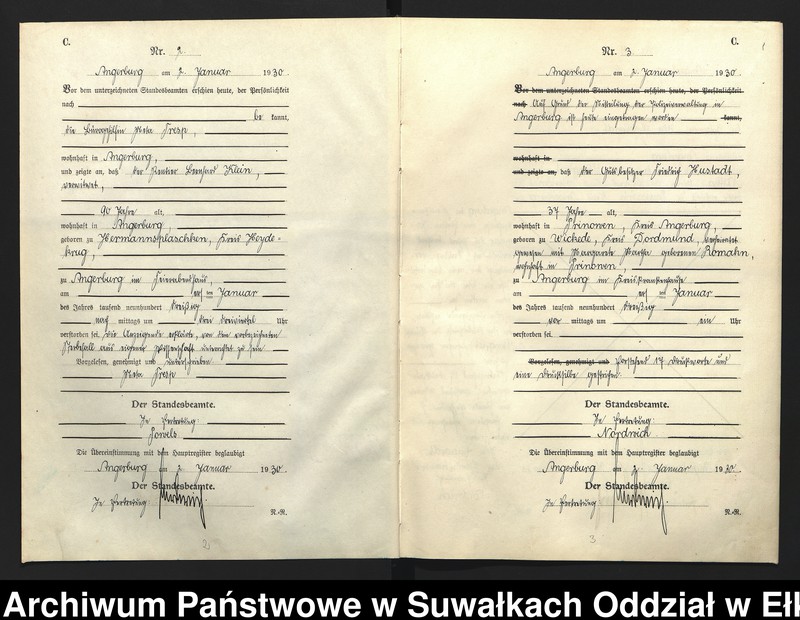 C.
Nr. 2.
Angerburg am 2. Januar 1930.
Vor dem unterzeichneten Standesbeamten erschien heute, der Persönlichkeit
nach
be kannt,
die Bürogehilfin Meta Tresp,
wohnhaft in Angerburg,
und zeigte an, daß der Rentier Bernhard Klein,
verwitwet,
90 Jahre alt,
wohnhaft in Angerburg,
geboren zu Hermannsplaschken, Kreis Heyde-
krug,
zu Angerburg im Feierabendhaus,
am ersten Januar
des Jahres tausend neunhundert dreißig
nach mittags um drei dreiviertel Uhr
verstorben sei. Die Anzeigende erklärte, von dem vorbezeichneten
Sterbefall aus eigener Wissenschaft unterrichtet zu sein.
Vorgelesen, genehmigt und unterschrieben.
Meta Tresp
Der Standesbeamte.
In Vertretung:
Die Übereinstimmung mit dem Hauptregister beglaubigt
Angerburg am 2. Januar 1930.
Der Standesbeamte.
In Vertretung:
N.-R.
2
C.
Nr. 3
Angerburg am 2. Januar 1930.
Vor dem unterzeichneten Standesbeamten erschien heute, der Persönlichkeit
nach Auf Grund der Mitteilung der Polizeiverwaltung in
Angerburg ist heute eingetragen worden kannt,
wohnhaft in
und zeigte an, daß der Gutsbesitzer Friedrich Hustadt,
37 Jahre alt,
wohnhaft in Prinowen, Kreis Angerburg,
geboren zu Wickede, Kreis Dortmund, verheiratet
gewesen mit Margarete Martha geborenen Romahn,
wohnhaft in Prinowen
zu Angerburg im Kreiskrankenhause
am ersten Januar
des Jahres tausend neunhundert dreißig
vor mittags um ein Uhr
verstorben sei.
Vorgelesen, genehmigt und Vorstehend 17 Druckworte und
eine Drucksilbe gestrichen.
Der Standesbeamte.
In Vertretung:
Nordwich
Die Übereinstimmung mit dem Hauptregister beglaubigt
Angerburg am 2. Januar 1930.
Der Standesbeamte.
In Vertretung:
N.-R.
3
Archiwum Państwowe w Suwałkach Oddział w Ełk